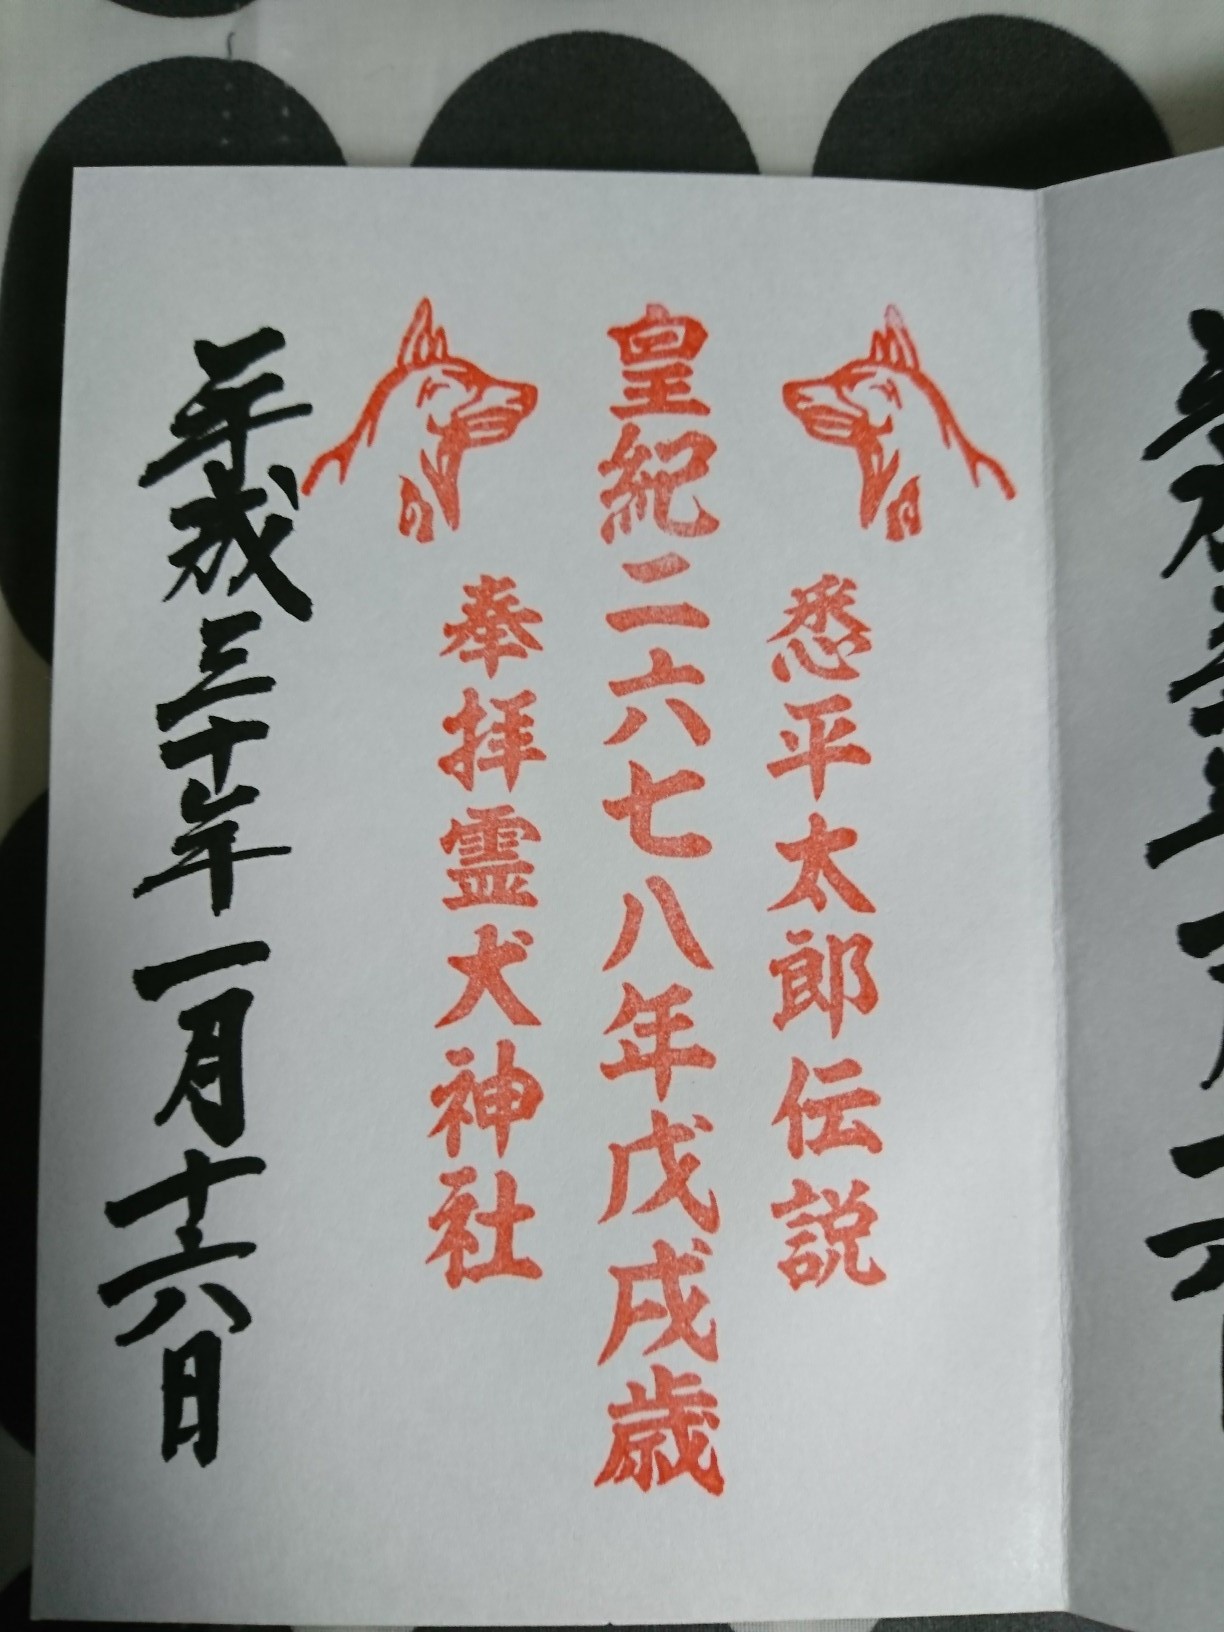 悉平太郎伝説
皇紀二六七八年戊戌歳
奉拝霊犬神社
平成三十年一月十六日